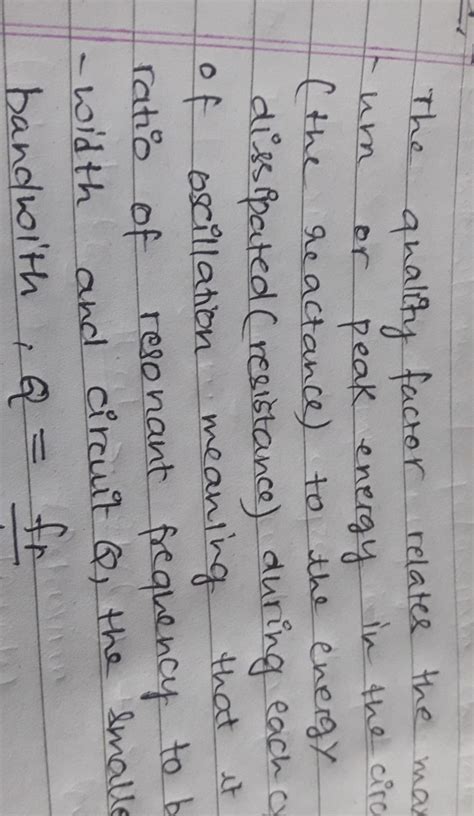 The quality factor relates the max
-um or peak energy in the circ
(the reactance) to the energy
dissipated (resistance) during each cy
of oscillation meaning that it
ratio of resonant frequency to b
-width and circuit Q, the smalle
bandwith, Q = fr